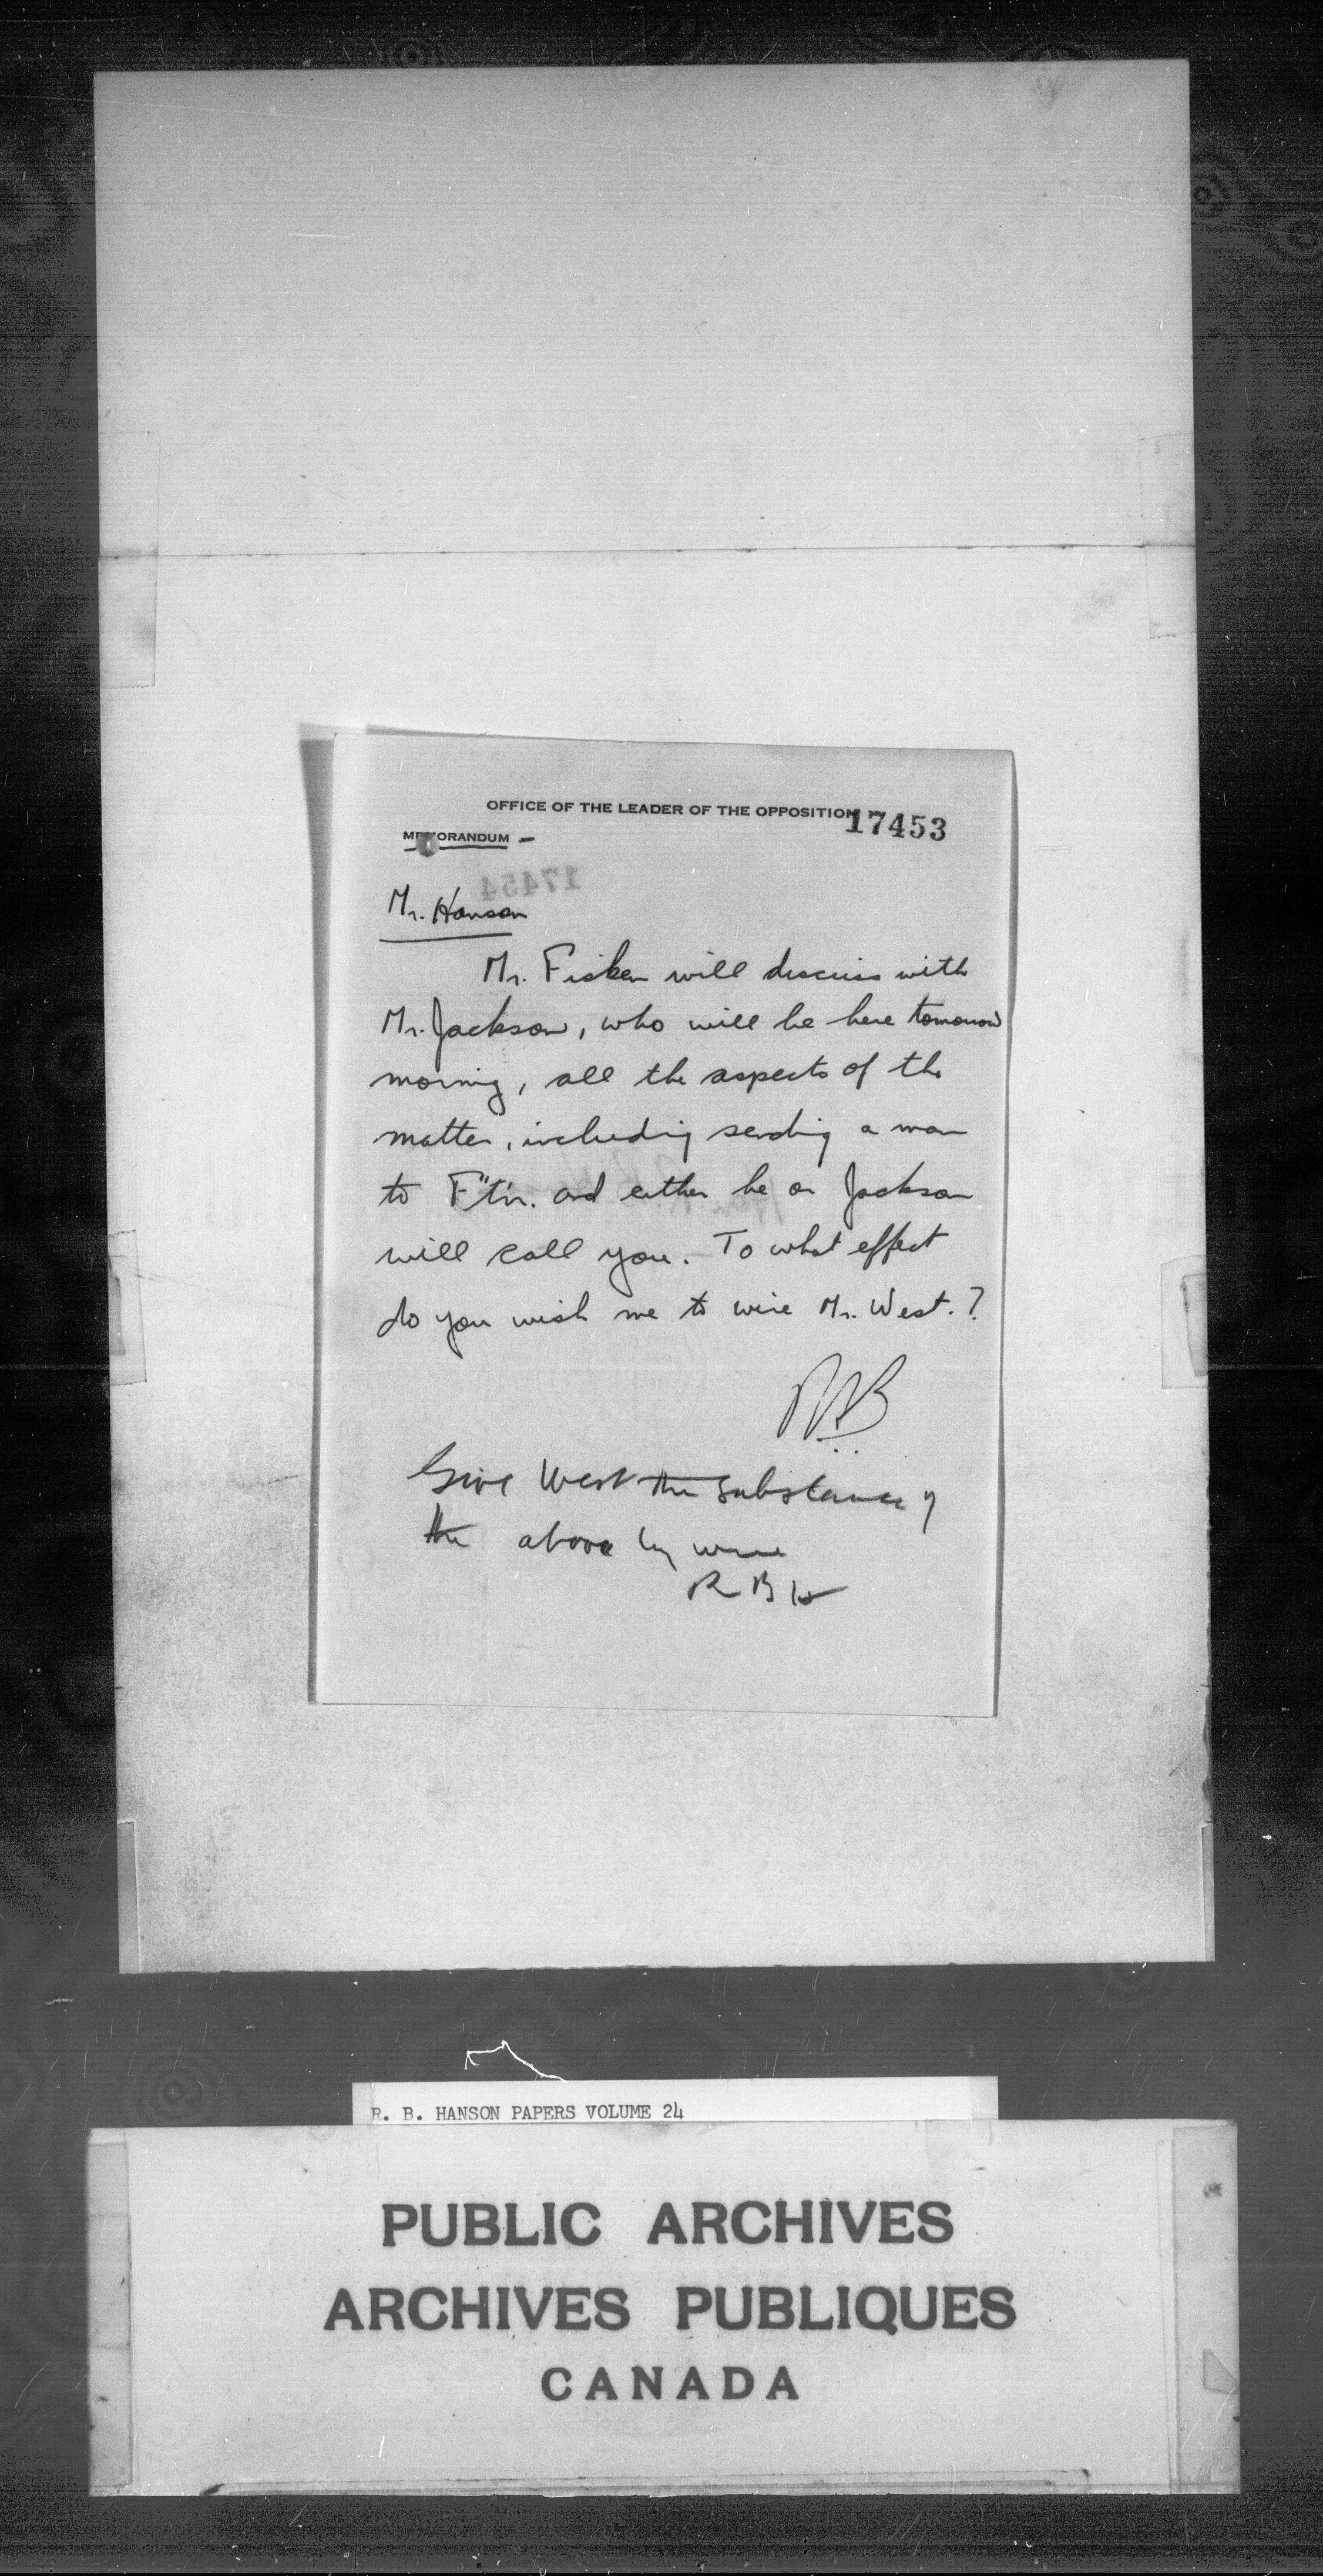 OFFICE OF THE LEADER OF THE OPPOSITION
17453
MEMORANDUM -
17454
Mr. Hanson
Mr. Fisken will discuss with
Mr. Jackson, who will be here tomorrow
morning, all the aspects of the
matter, including sending a man
to F't'n. and either he or Jackson
will call you. To what effect
do you wish me to wire Mr. West.?
Give West the substance of
the above by wire
RBH
R. B. HANSON PAPERS VOLUME 24
PUBLIC ARCHIVES
ARCHIVES PUBLIQUES
CANADA